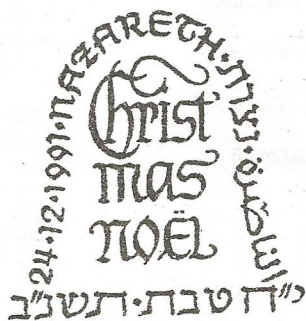 24·12·1991·NAZARETH·נצרת·الناصرة
Christ
mas
NOËL
י"ח טבת·תשנ"ב